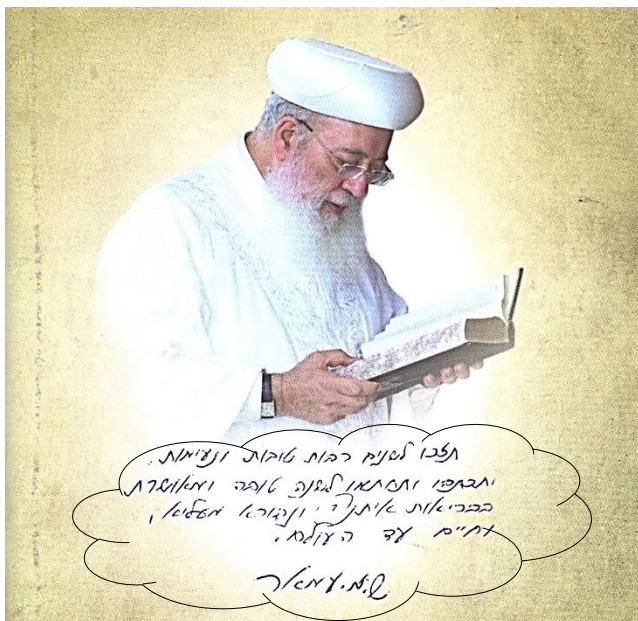 תזכו לשנים רבות טובות ונעימות.
ותכתבו ותחתמו לשנה טובה ומאושרת
בבריאות ונהורא מעליא,
וחיים עד העולם.
ש.מ.עמאר